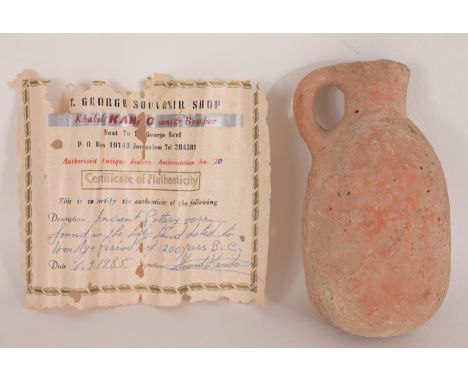 T. GEORGE SOUVENIR SHOP
Khalil KAN O sons & Brother
Next To St. George Hotel
P. O Box 19140 Jerusalem Tel 284381
Authorised Antique dealers. Authorisation No. 20
Certificate of Authenticity
This is to certify the authenticity of the following
Description Ancient Pottery vase
found in the holy land dated to
Iron Age Period of 1200 years B. C.
Date 6.9.1985